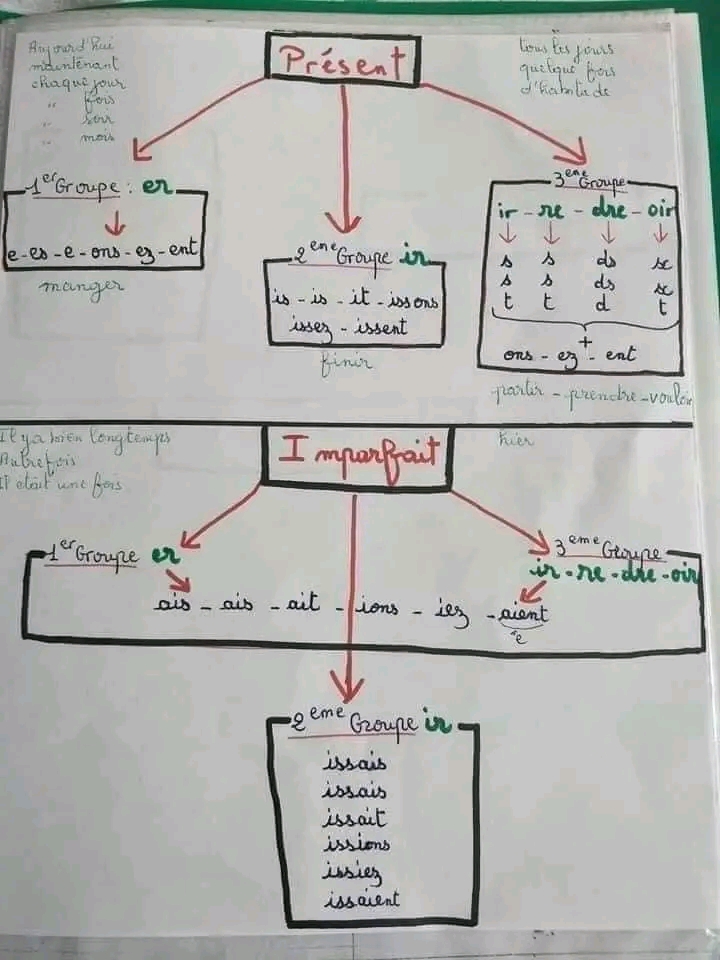 Aujourd'hui
maintenant
chaque jour
" fois
" soir
" mois
Présent
tous les jours
quelque fois
d'habitude
1er Groupe : er
e - es - e - ons - ez - ent
manger
2eme Groupe ir
is - is - it - issons
issez - issent
finir
3eme Groupe
ir - re - dre - oir
s s ds x
s s ds x
t t d t
+
ons - ez - ent
partir - prendre - vouloir
Il y a bien longtemps
Autrefois
Il etait une fois
Imparfait
hier
1er Groupe er
3eme Groupe
ir - re - dre - oir
ais - ais - ait - ions - iez - aient
"e
2eme Groupe ir
issais
issais
issait
issions
issiez
issaient